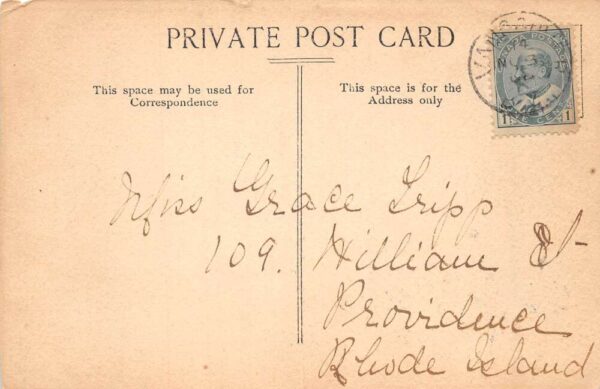 PRIVATE POST CARD
This space may be used for
Correspondence
This space is for the
Address only
1 CENT 1
Miss Grace Tripp
109. William St
Providence
Rhode Island